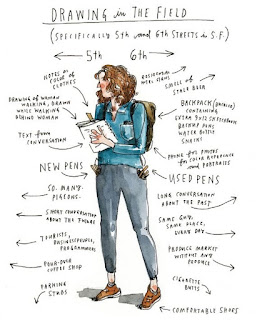 DRAWING in THE FIELD
(SPECIFICALLY 5th and 6th STREETS in S.F.)
5th
6th
NOTES on
COLOR of
CLOTHES
DRAWING OF WOMAN
WALKING, DRAWN
WHILE WALKING
BEHIND WOMAN
TEXT from
CONVERSATION
NEW PENS
SO. MANY.
PIGEONS.
SHORT CONVERSATION
ABOUT THE FUTURE
TOURISTS,
BUSINESSPEOPLE,
PROGRAMMERS
POUR-OVER
COFFEE SHOP
PARKING
STUBS
SMELL of
STALE BEER
BACKPACK
CONTAINING
EXTRA 9x12 SKETCHBOOK
BACKUP PENS
WATER BOTTLE
SNACKS
PHONE for PHOTOS
for COLOR REFERENCE
and PORTRAITS
USED PENS
LONG CONVERSATION
ABOUT THE PAST
SAME GUY,
SAME PLACE,
EVERY DAY
PRODUCE MARKET
WITHOUT ANY
PRODUCE
CIGARETTE
BUTTS
COMFORTABLE SHOES